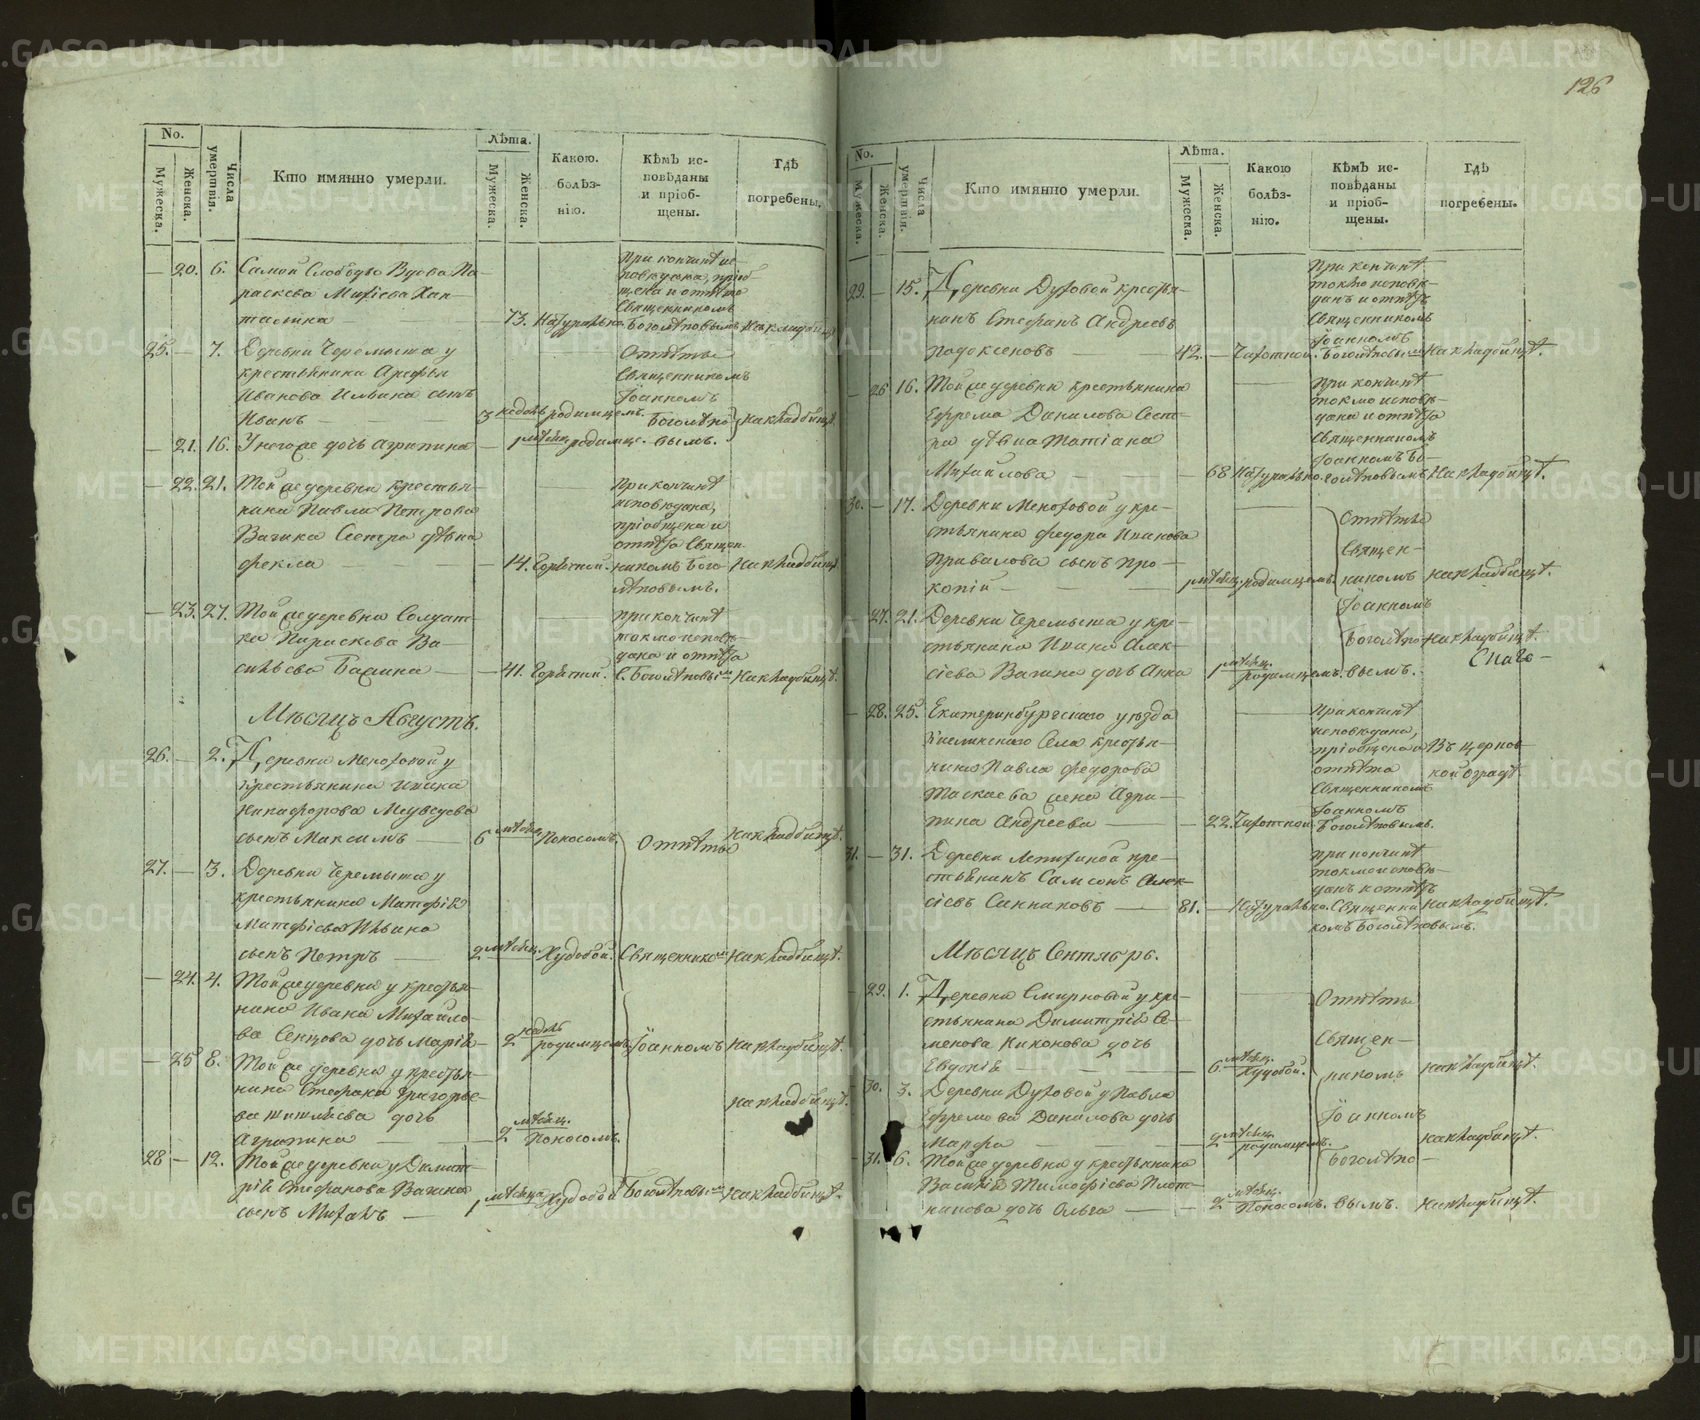 126
No.
Мужеска.
Женска.
Числа умертвія.
Кто имянно умерли.
Лѣта.
Мужеска.
Женска.
Какою болѣзнію.
Кѣмъ исповѣданы и пріобщены.
Гдѣ погребены.
20. 6. Самой Слободы Вдова Па-
раскева
73.
25. — 7. Деревни Черемыша у
крестьянина Арефы
Иванова Ильина сынъ
Иванъ
Отпѣты
Священникомъ
Іоанномъ
Боголѣпо-
вымъ.
3 недѣль родимцемъ.
— 21. 16. У него же дочь Агрипина
— 22. 21. Той же деревни крестья-
нина Павла Петрова
Вагина Сестра дѣвка
Фекла
14. Горячкой.
При кончинѣ
исповѣдана,
пріобщена и
отпѣта Священ-
никомъ Бого-
лѣповымъ.
На кладбищѣ
— 23. 27. Той же деревни Солдат-
ка Параскева Ва-
сильева
41. Горячкой.
При кончинѣ
токмо исповѣ-
дана и отпѣта
С. Боголѣповымъ
На кладбищѣ.
Мѣсяцъ Августъ.
26. — 2. Деревни Мокоховой у
крестьянина
Никифорова Медведева
сынъ Максимъ
6 Поносомъ.
Отпѣты
на кладбищѣ.
27. — 3. Деревни Черемыша у
крестьянина Матфія
Матфіева Ильина
сынъ Петръ
2 мѣсяц. Худобой.
Священникомъ
на кладбищѣ.
— 24. 4. Той же деревни у крестья-
нина Ивана Михайло-
ва Сенцова дочь Марія
2 недѣль родимцемъ.
Іоанномъ
на кладбищѣ.
— 25. 8. Той же деревни у крестья-
нина Стефана Григорье-
ва дочь
Агрипина
2 мѣсяц. Поносомъ.
на кладбищѣ.
28 — 12. Той же деревни у Димит-
рія Стефанова Вагина
сынъ
1 мѣсяца Худобой
Боголѣповымъ
на кладбищѣ.
No.
Мужеска.
Женска.
Числа умертвія.
Кто имянно умерли.
Лѣта.
Мужеска.
Женска.
Какою болѣзнію.
Кѣмъ исповѣданы и пріобщены.
Гдѣ погребены.
29. — 15. Деревни Духовой крестья-
нинъ Стефанъ Андреевъ
42. — Чахоткой.
При кончинѣ
токмо исповѣ-
данъ и отпѣтъ
Священникомъ
Іоанномъ
Боголѣповымъ
На кладбищѣ.
— 26 16. Той же деревни крестьянина
Ефрема Данилова Сест-
ра дѣвка Татіана
Михайлова
68 Натурально.
При кончинѣ
токмо исповѣ-
дана и отпѣта
Священникомъ
Іоанномъ Бо-
голѣповымъ
На кладбищѣ.
30. — 17. Деревни Мокоховой у кре-
стьянина Федора Иванова
Привалова сынъ Про-
копій
родимцемъ.
Отпѣты
Священ-
никомъ
на кладбищѣ.
27. 21. Деревни Черемыша у кре-
стьянина Ивана Алек-
сіева Вагина дочь Анна
1 мѣсяц. родимцемъ.
Іоанномъ
Боголѣпо-
вымъ.
на кладбищѣ.
— 28. 25. Екатеринбургскаго уѣзда
Села крестья-
нина Павла Федорова
Таскаева жена Агри-
пина Андреева
22. Чахоткой.
При кончинѣ
исповѣдана,
пріобщена и
отпѣта
Священникомъ
Іоанномъ
Боголѣповымъ.
Въ церков-
ной оградѣ
31. — 31. Деревни Лепихиной кре-
стьянинъ Самсонъ Алек-
сіевъ Санниковъ
81. — Натурально.
При кончинѣ
токмо исповѣ-
данъ и отпѣтъ
Священни-
комъ Боголѣповымъ.
На кладбищѣ.
Мѣсяцъ Сентябрь.
29. 1. Деревни Смирновой у кре-
стьянина Димитрія Се-
менова Никонова дочь
Евдокія
6. мѣсяц. Худобой.
Отпѣты
Священ-
никомъ
на кладбищѣ.
30. 3. Деревни Духовой у Павла
Ефремова Данилова дочь
Марфа
2 мѣсяц. родимцемъ.
Іоанномъ
на кладбищѣ.
31. 6. Той же деревни у крестьянина
Василія Тимофіева Плот-
никова дочь Ольга
2 мѣсяц. Поносомъ.
Боголѣпо-
вымъ.
на кладбищѣ.
METRIKI.GASO-URAL.RU